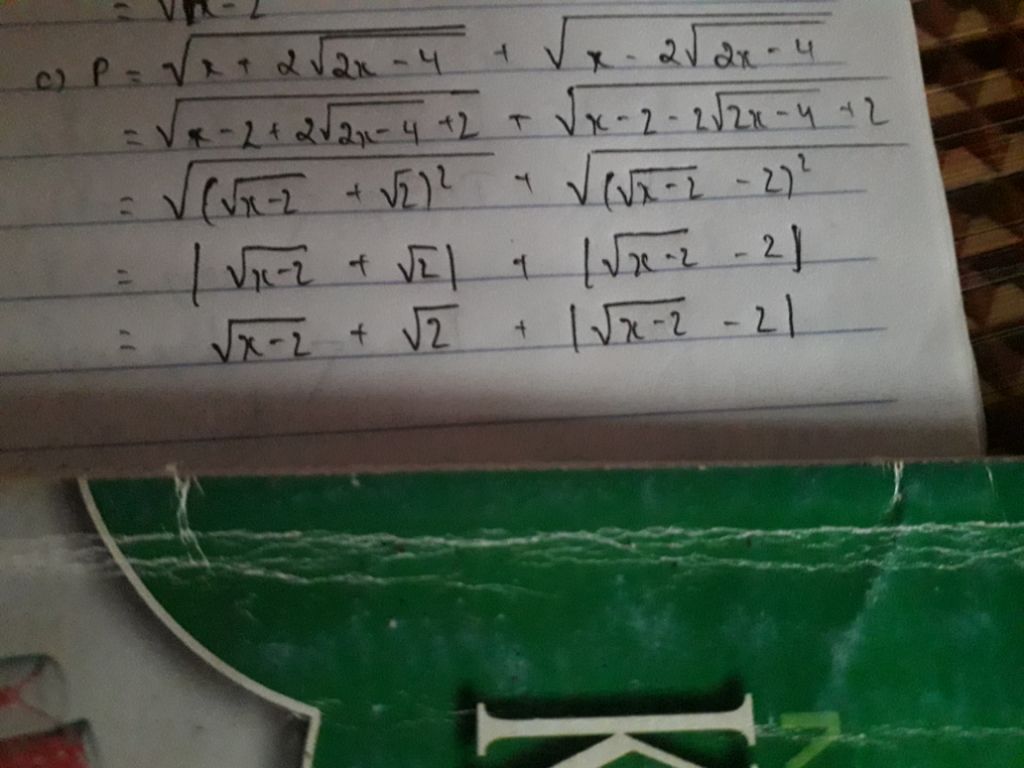 = √x-2
c) P = √(x + 2√(2x - 4)) + √(x - 2√(2x - 4))
= √(x-2+2√(2x-4)+2) + √(x-2-2√(2x-4)+2)
= √((√(x-2) + √2)²) + √((√(x-2) - 2)²)
= |√(x-2) + √2| + |√(x-2) - 2|
= √(x-2) + √2 + |√(x-2) - 2|
K